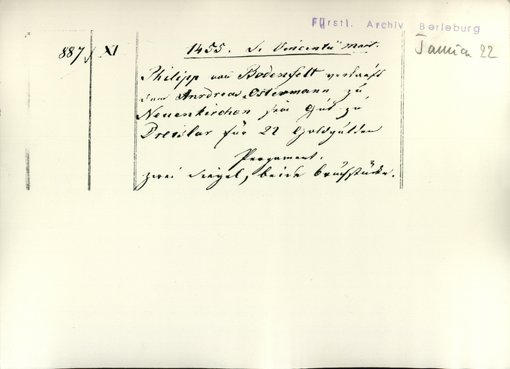 Fürstl. Archiv Berleburg
Januar 22
887, XI
1455. S. Vincentii mart.
Philipp von Bodenfelt verkauft
dem Andreas Ostermann zu
Neuenkirchen sein Gut zu
Dreislar für 22 Goldgulden
Pergament.
zwei Siegel, beide bruchstücke.